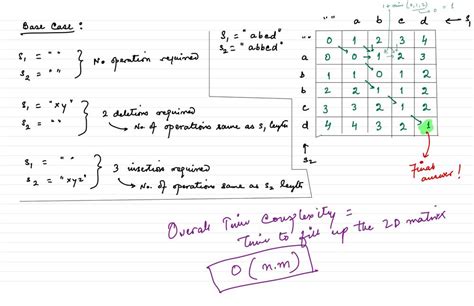 Base Case:
S₁ = " "
S₂ = " "
No operation required
S₁ = "xy"
S₂ = " "
2 deletions required
→ No. of operations same as S₁ length
S₁ = " "
S₂ = "xyz"
3 insertion required
→ No. of operations same as S₂ length
S₁ = "abcd"
S₂ = "abbcd"
" " a b c d ← S₁
" " 0 1 2 3 4
a 0 0 1 2 3
b 1 1 0 1 2
b 2 2 1 1 2
c 3 3 2 1 2
d 4 4 3 2 1
↑
S₂
Final
answer!
Overall Time Complexity =
Time to fill up the 2D matrix
O(n.m)